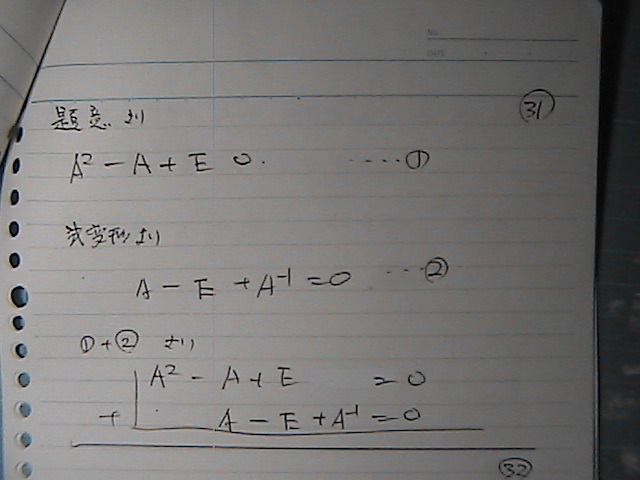 No.
DATE
㉛
題意より
A² - A + E 0. ‥‥①
式変形より
A - E + A⁻¹ = 0 ‥②
①+② より
A² - A + E = 0
+ A - E + A⁻¹ = 0
㉜